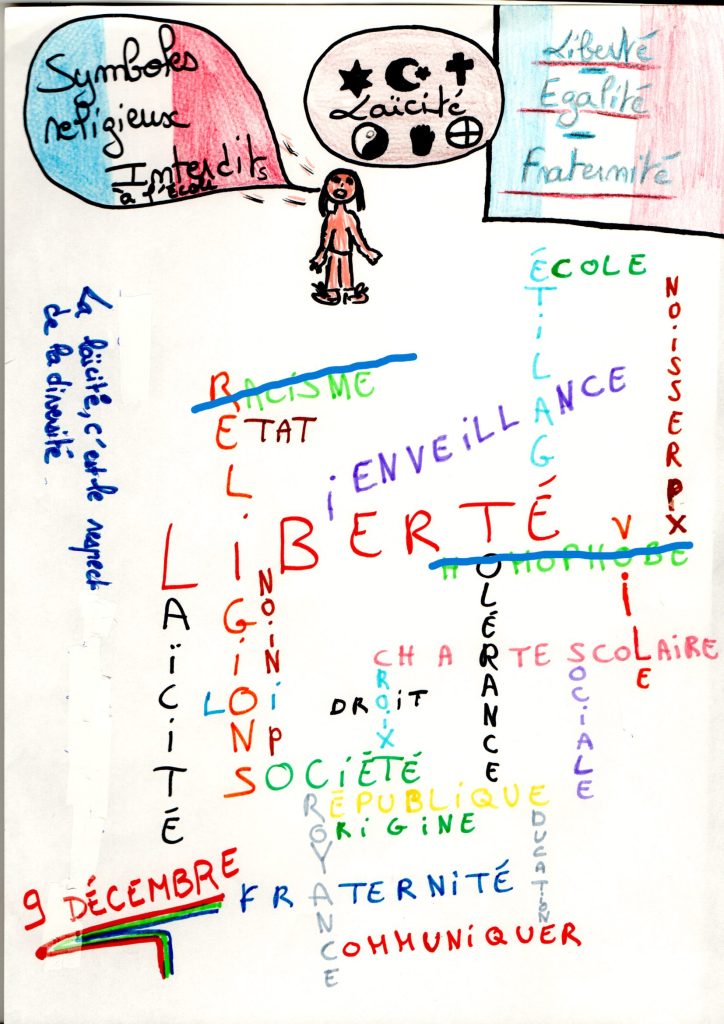 Symboles
religieux
Interdits
à l'école
Laïcité
Liberté
Egalité
Fraternité
La laïcité, c'est le respect
de la diversité
ÉCOLE
ÉGALITÉ
EXPRESSION
RACISME
RELiGiONS
ETAT
BiENVEiLLANCE
LiBERTÉ
ViLE
HOMOPHOBE
LAÏCiTÉ
OPiNiON
TOLÉRANCE
CHARTE SCOLAIRE
LOi
DROiT
CROiX
SOCiALE
SOCiÉTÉ
RÉPUBLiQUE
CROYANCE
ORiGiNE
ÉDUCATiON
9 DÉCEMBRE
FRATERNiTÉ
COMMUNiQUER